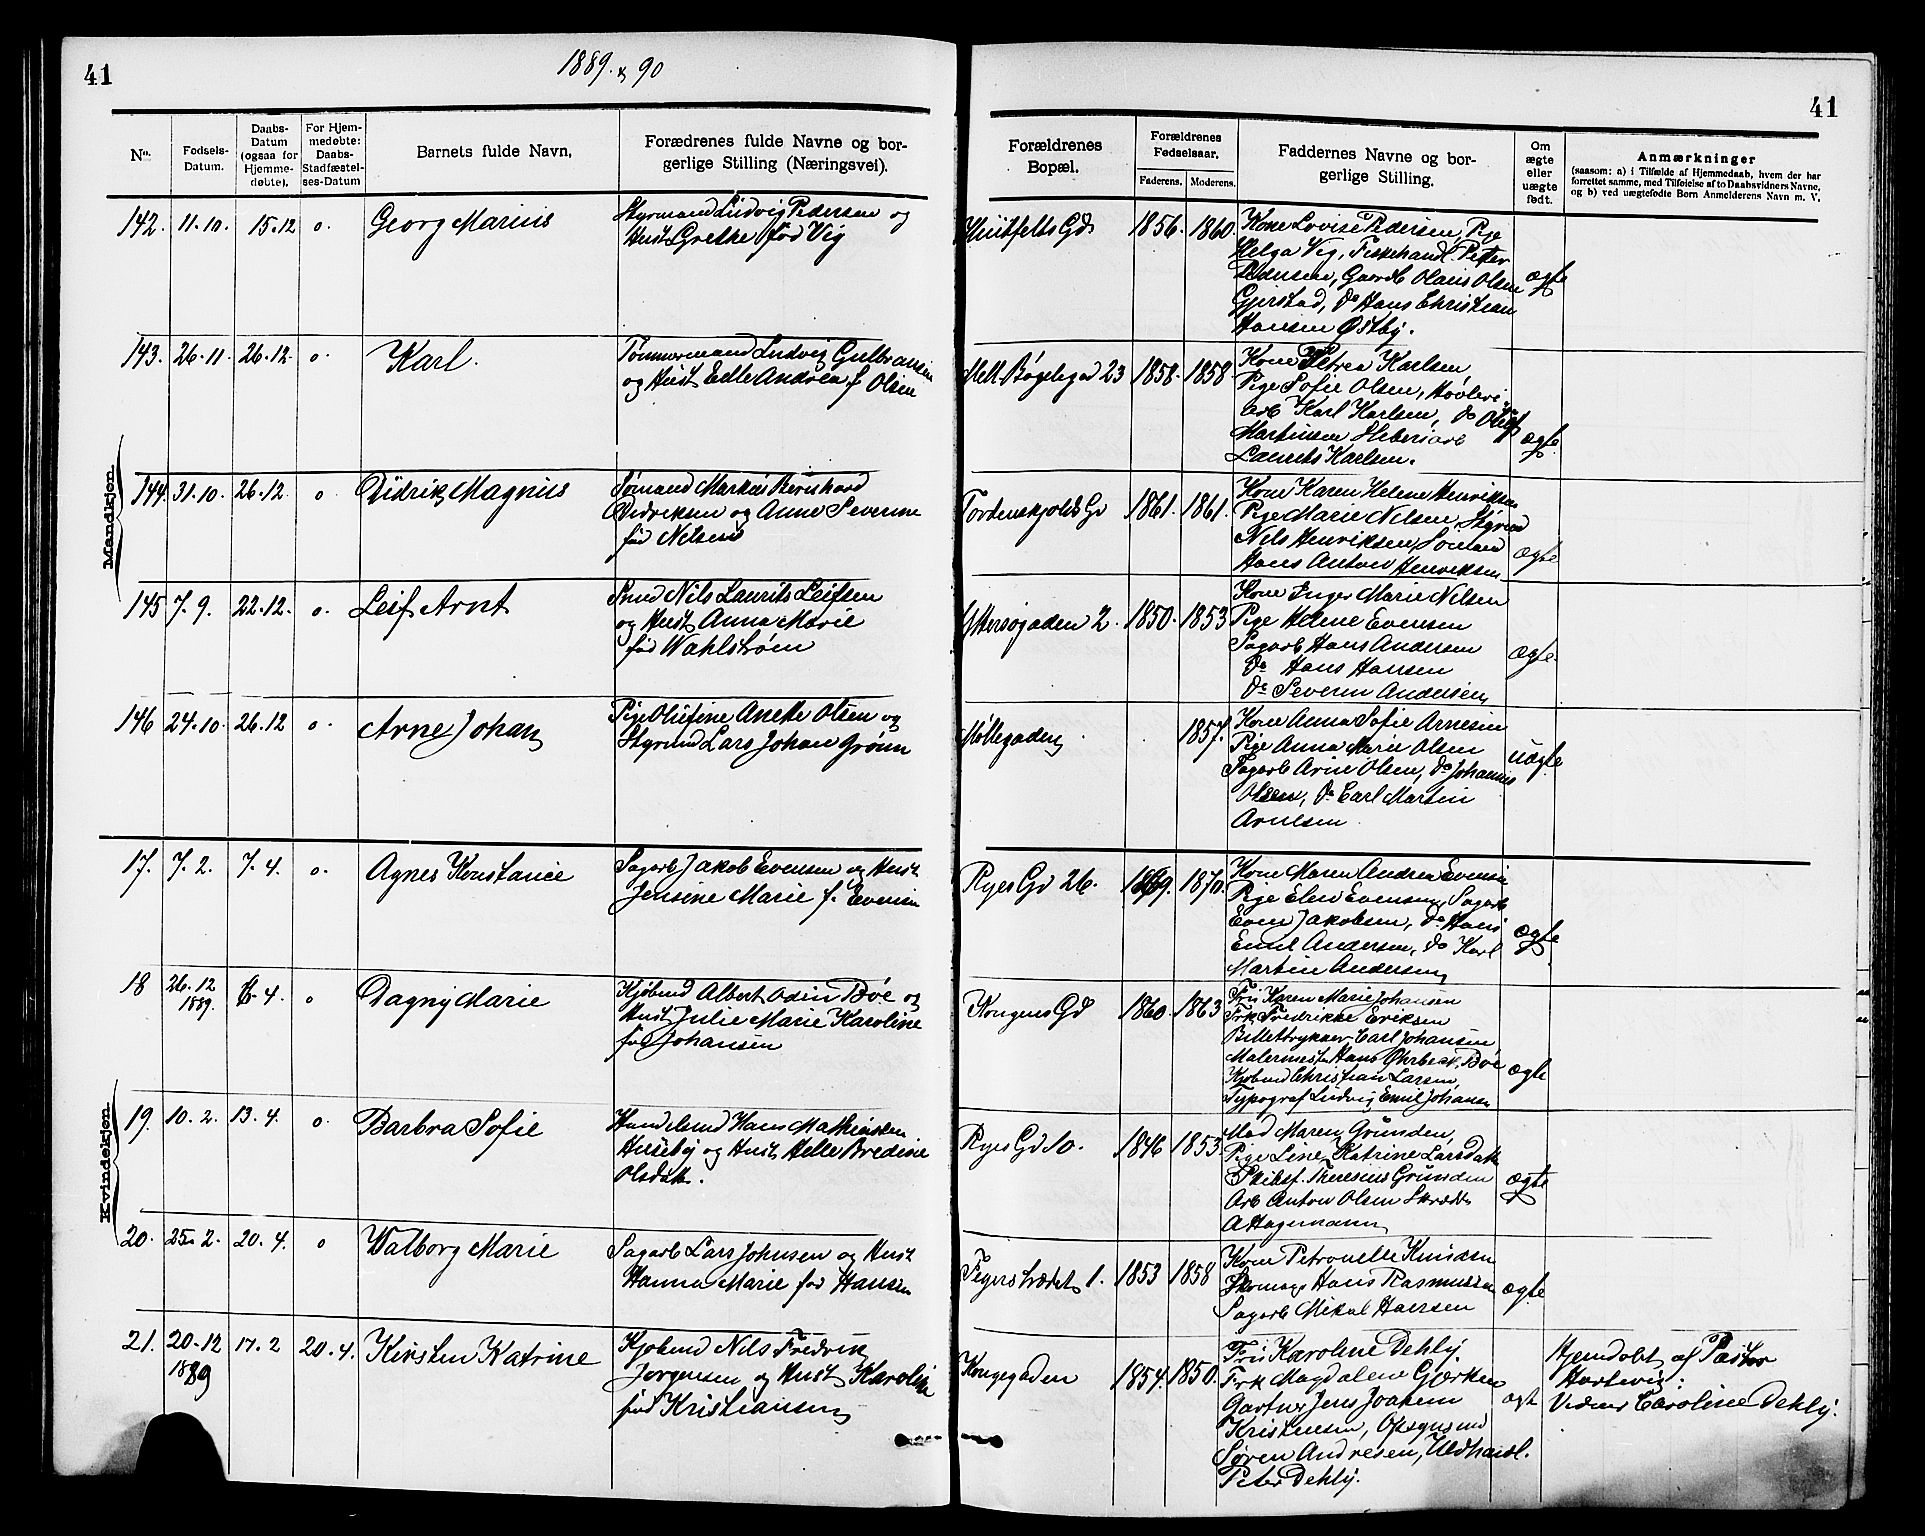 41
1889 & 90
41
No.
Fødsels-
Datum.
Daabs-
Datum
(ogsaa for
Hjemme-
døbte).
For Hjem-
medøbte:
Daabs-
Stadfæstel-
ses-Datum
Barnets fulde Navn,
Forædrenes fulde Navne og bor-
gerlige Stilling (Næringsvei).
Forældrenes
Bopæl.
Forældrenes
Fødselsaar.
Faderens.
Moderens.
Faddernes Navne og bor-
gerlige Stilling.
Om
ægte
eller
uægte
født.
Anmærkninger
(saasom: a) i Tilfælde af Hjemmedaab, hvem der har
forrettet samme, med Tilføielse af to Daabsvidners Navne,
og b) ved uægtefødte Børn Anmelderens Navn m. V.
Mandkjøn
142. 11.10. 15.12 o. Georg Marius
Styrmand Ludvig Pedersen og
Hust Grethe fød Vig
Huitfelts Gd 1856. 1860.
Kone Lovise Pedersen, Pige
Helga Vig, Fiskehandl. Petter
Pedersen, Gaardb Olaus Olsen
Gjerstad, do Hans Christian
Hansen Østby.
ægte
143. 26.11. 26.12. o. Karl.
Tømmermand Ludvig Gulbransen
og Hust Edle Andrea f Olsen
Mell. Bøgelegad 23 1858. 1858.
Kone Petrea Karlsen
Pige Sofie Olsen, Høvleri-
arb Karl Karlsen, do Oluf
Martinsen
Laurits Karlsen.
ægte
144. 31.10. 26.12 o Didrik Magnus
Sømand Markus Bernhard
Didriksen og Anne Severine
fød Nelsen
Tordenskjolds Gd 1861. 1861.
Kone Karen Helene Henriksen
Pige Marie Nelsen, Styrmd
Nils Henriksen, Sömand
Hans Anton Henriksen
ægte
145 7.9. 22.12. o. Leif Arnt
Smed Nils Laurits Leifsen
og Hust Anna Marie
fød Wahlstrøm
Yttersøgaden 2. 1850. 1853
Kone Inger Marie Nilsen
Pige Helene Evensen
Sagarb Hans Andersen
do Hans Hansen
do Severin Andersen
ægte.
146 24.10. 26.12 o. Arne Johan
Pige Olufine Anette Olsen og
Styrmd Lars Johan Grønn
Møllegaden 1857.
Kone Anna Sofie Arnesen
Pige Anna Marie Olsen
Sagarb Arne Olsen, do Johannes
Olsen, do Carl Martin
Arnesen.
uægte
Kvindekjøn
17. 7.2. 7.4. o. Agnes Konstance
Sagarb Jakob Evensen og Hust
Jensine Marie f. Evensen
Ryes Gd 26. 1869. 1870.
Kone Maren Andrea Evensen
Pige Elen Evensen, Sagarb
Even Jakobsen, do Hans
Emil Andersen, do Karl
Martin Andersen
ægte
18 26.12 1889. 6.4. o Dagny Marie
Kjøbmd Albert Odin Bøe og
Hust Julie Marie Karoline
fød Johansen
Kongens Gd 1860. 1863
Fru Karen Marie Johansen
Frk. Fredrikke Eriksen
Billettrykker Carl Johansen
Malermester Hans Øhrbeck Bøe
Kjøbmd Christian Larsen,
Typograf Ludvig Emil Johansen
ægte
19. 10.2. 13.4. o. Barbra Sofie
Handelsmd Hans Mathiassen
Huseby og Hust, Helle Bredine
Olsdatt.
Ryes Gd 10. 1846 1853.
Mad Maren Gründen,
Pige Line Katrine Larsdatt
Skibsf. Theresius Gründen
Arb Anton Olsen Skrædder
A Hagemann
ægte
20. 25.2. 20.4. o Walborg Marie
Sagarb Lars Johnsen og Hust
Hanna Marie fød Hansen
Fegerstrædet 1. 1853 1858
Kone Petronelle Knudsen
Skomag Hans Rasmussen
Sagarb Mikal Hansen
ægte
21. 20.12 1889 17.2 20.4. Kirsten Katrine
Kjøbmd Nils Fredrik
Jørgensen og Hust Karoline
fød Kristiansen
Kongegaden 1854. 1850.
Fru Karoline Dehly.
Frk Magdalene Gjerken
Gartner Jens Joakim
Kristensen, Opsynsmd
Søren Andresen, Uldhandl.
Peter Dehly.
ægt
Hjemdøbt af Pastor
Hartvig:
Vidner Caroline Dehly.